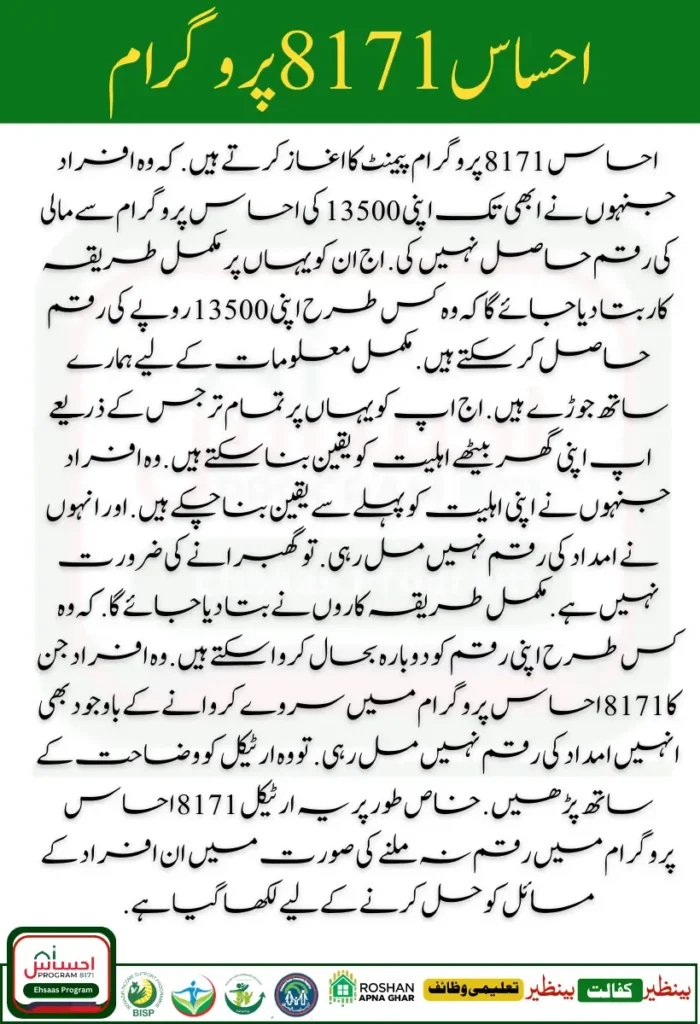 احساس 8171 پروگرام
احساس 8171 پروگرام پیمنٹ کا اغاز کرتے ہیں. کہ وہ افراد
جنہوں نے ابھی تک اپنی 13500 کی احساس پروگرام سے مالی
کی رقم حاصل نہیں کی. اج ان کو یہاں پر مکمل طریقہ
کار بتا دیا جائے گا کہ وہ کس طرح اپنی 13500 روپے کی رقم
حاصل کر سکتے ہیں. مکمل معلومات کے لیے ہمارے
ساتھ جوڑے ہیں. اج اپ کو یہاں پر تمام تر جس کے ذریعے
اپ اپنی گھر بیٹھے اہلیت کو یقین بنا سکتے ہیں. وہ افراد
جنہوں نے اپنی اہلیت کو پہلے سے یقین بنا چکے ہیں. اور انہوں
نے امداد کی رقم نہیں مل رہی. تو گھبرانے کی ضرورت
نہیں ہے. مکمل طریقہ کاروں نے بتا دیا جائے گا. کہ وہ
کس طرح اپنی رقم کو دوبارہ بحال کروا سکتے ہیں. وہ افراد جن
کا 8171 احساس پروگرام میں سروے کروانے کے باوجود بھی
انہیں امداد کی رقم نہیں مل رہی. تو وہ ارٹیکل کو وضاحت کے
ساتھ پڑھیں. خاص طور پر یہ ارٹیکل 8171 احساس
پروگرام میں رقم نہ ملنے کی صورت میں ان افراد کے
مسائل کو حل کرنے کے لیے لکھا گیا ہے.
احساس
PROGRAM 8171
Ehsaas Program
BISP
ROSHAN
APNA GHAR
بینظیر تعلیمی وظائف
بینظیر کفالت